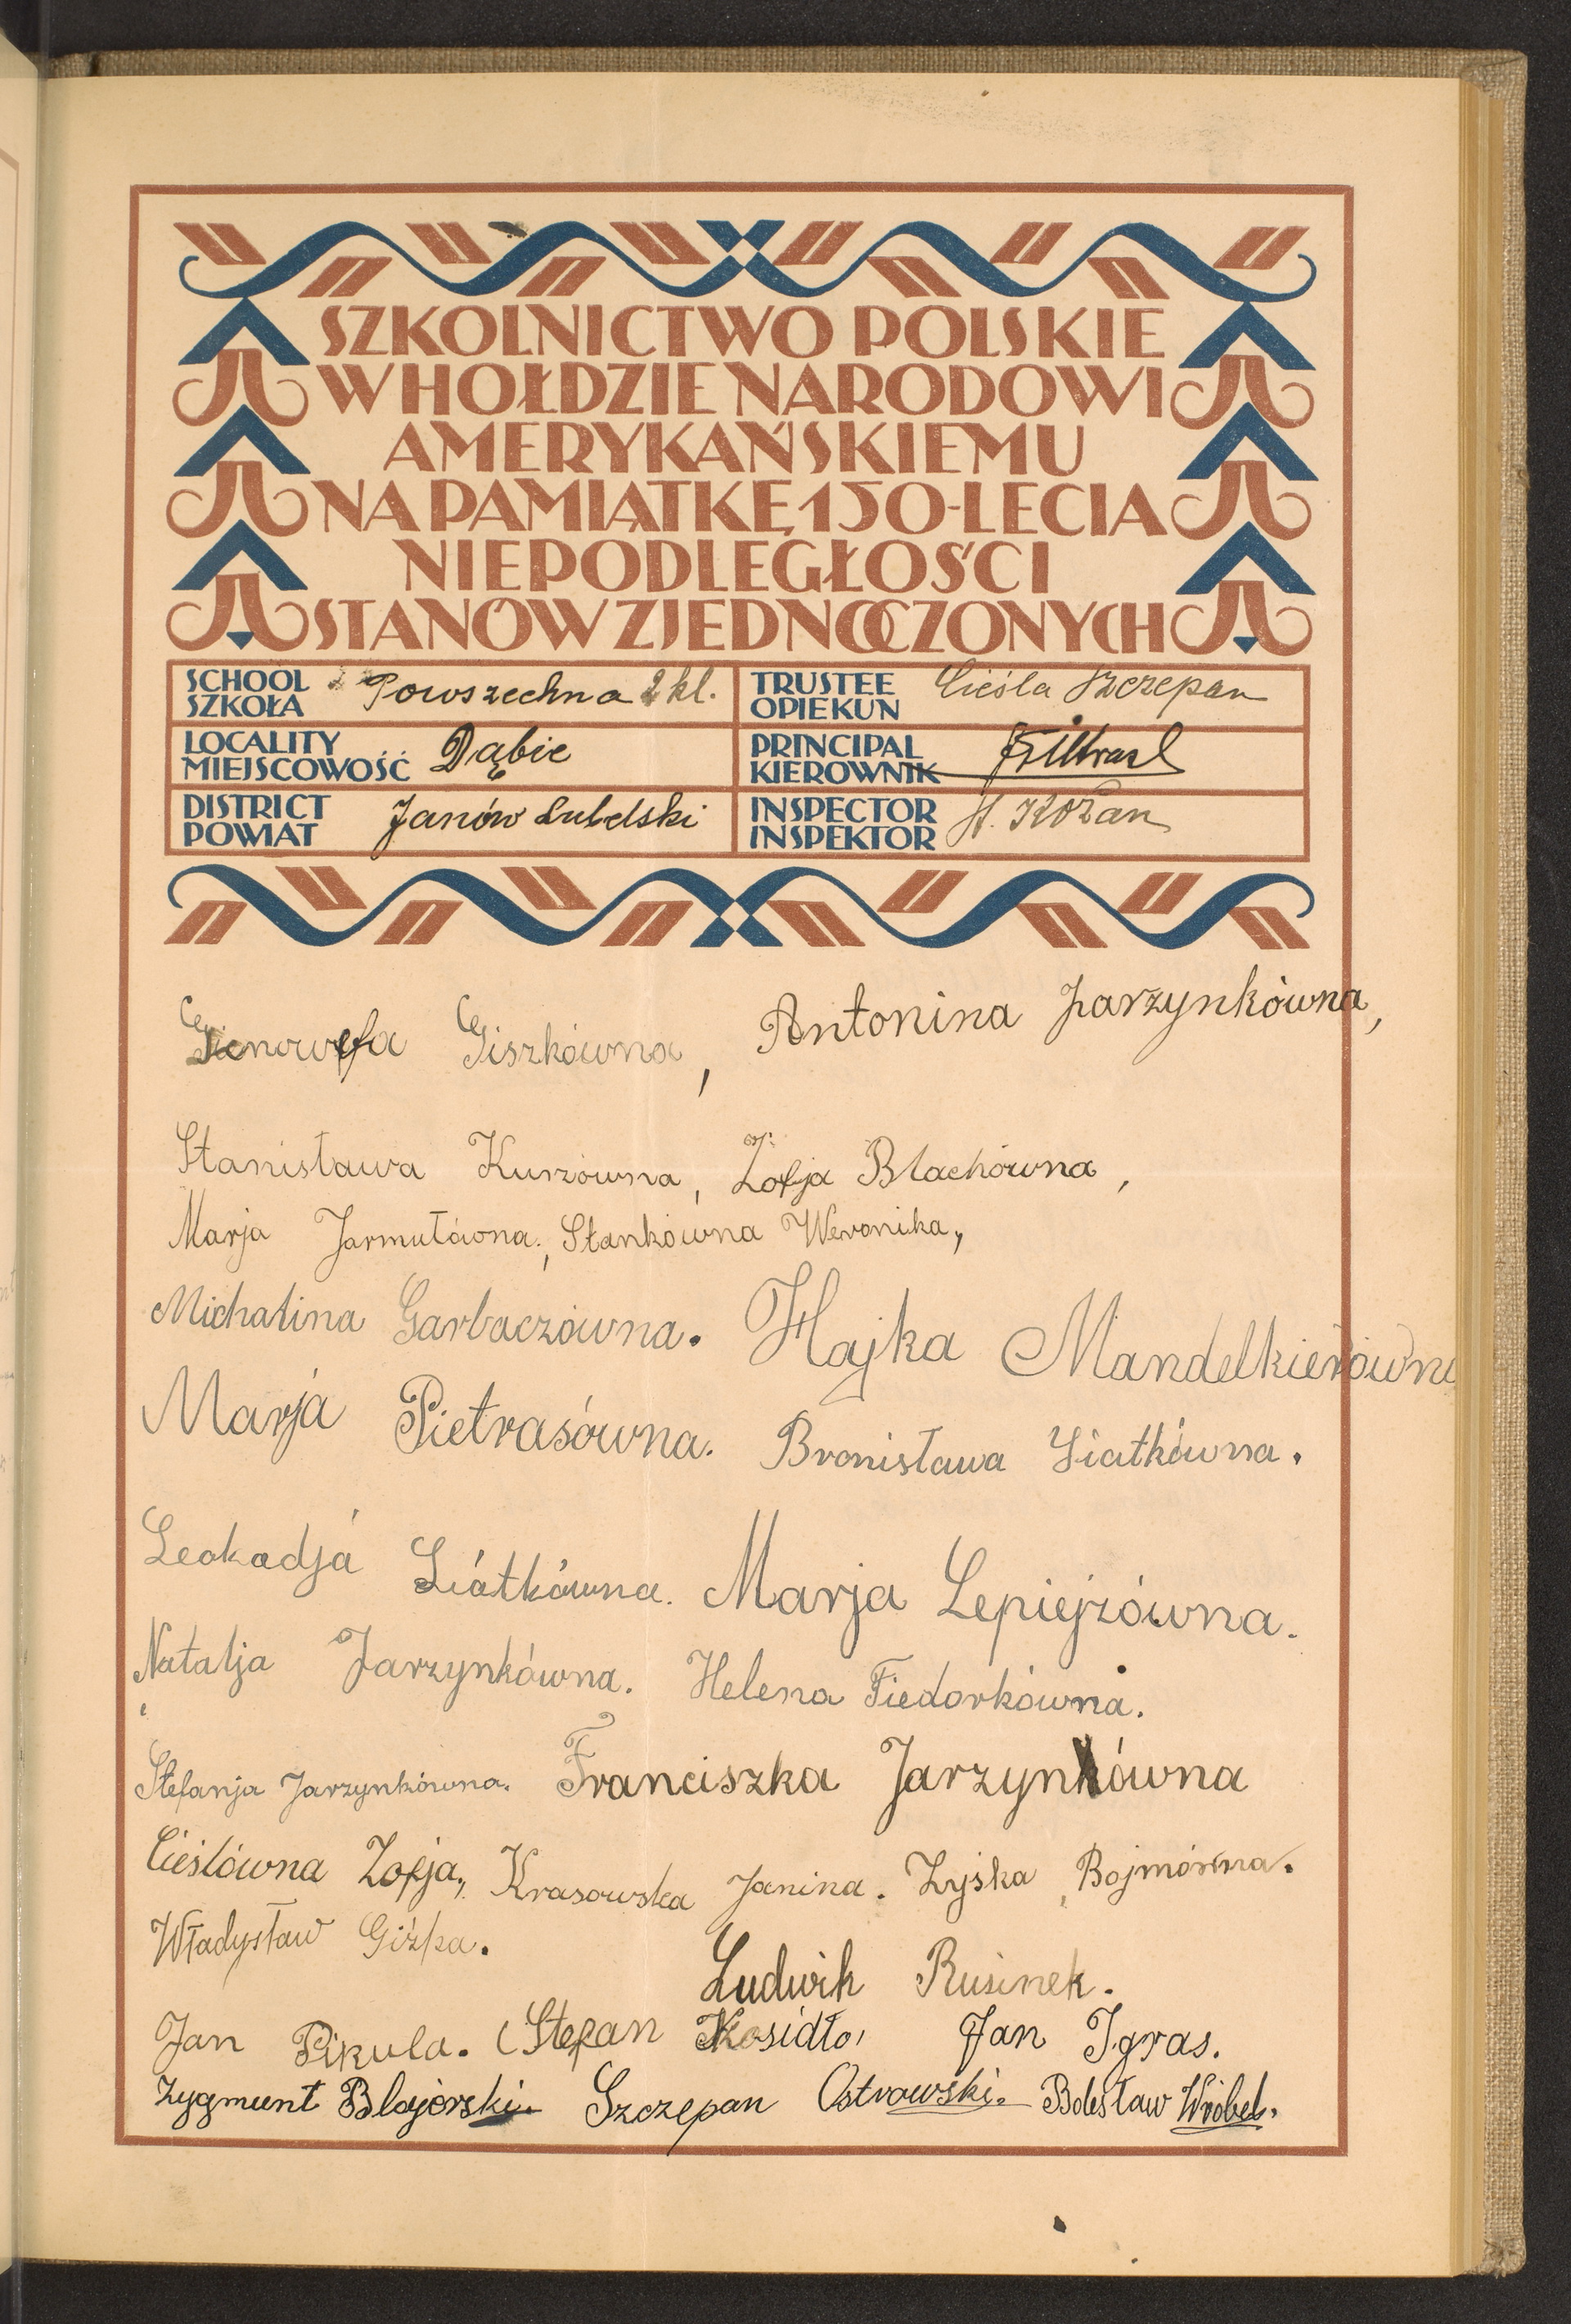 SZKOLNICTWO POLSKIE
W HOŁDZIE NARODOWI
AMERYKAŃSKIEMU
NA PAMIĄTKĘ 150-LECIA
NIEPODLEGŁOŚCI
STANÓW ZJEDNOCZONYCH
SCHOOL SZKOŁA Powszechna 2 kl.
TRUSTEE OPIEKUN Cieśla Szczepan
LOCALITY MIEJSCOWOŚĆ Dąbie
PRINCIPAL KIEROWNIK
DISTRICT POWIAT Janów Lubelski
INSPECTOR INSPEKTOR Kozan
Gienowefa Giszkówna, Antonina Jarzynkówna,
Stanisława Kurzówna, Zofja Blachówna,
Marja Jarmułówna., Stankówna Weronika,
Michalina Garbaczówna. Hajka Mandelkierówna
Marja Pietrasówna. Bronisława Siatkówna.
Leokadja Siatkówna. Marja Lepiejzówna.
Natalja Jarzynkówna. Helena Fiedorkówna.
Stefanja Jarzynkówna. Franciszka Jarzynkówna
Cieślówna Zofja, Krasowska Janina. Zyśka Bojmówna.
Władysław Giżka.
Ludwik Rusinek.
Jan Pikula. Stefan Kosidło, Jan Igras.
Zygmunt Blajerski. Szczepan Ostrowski. Bolesław Wróbel.